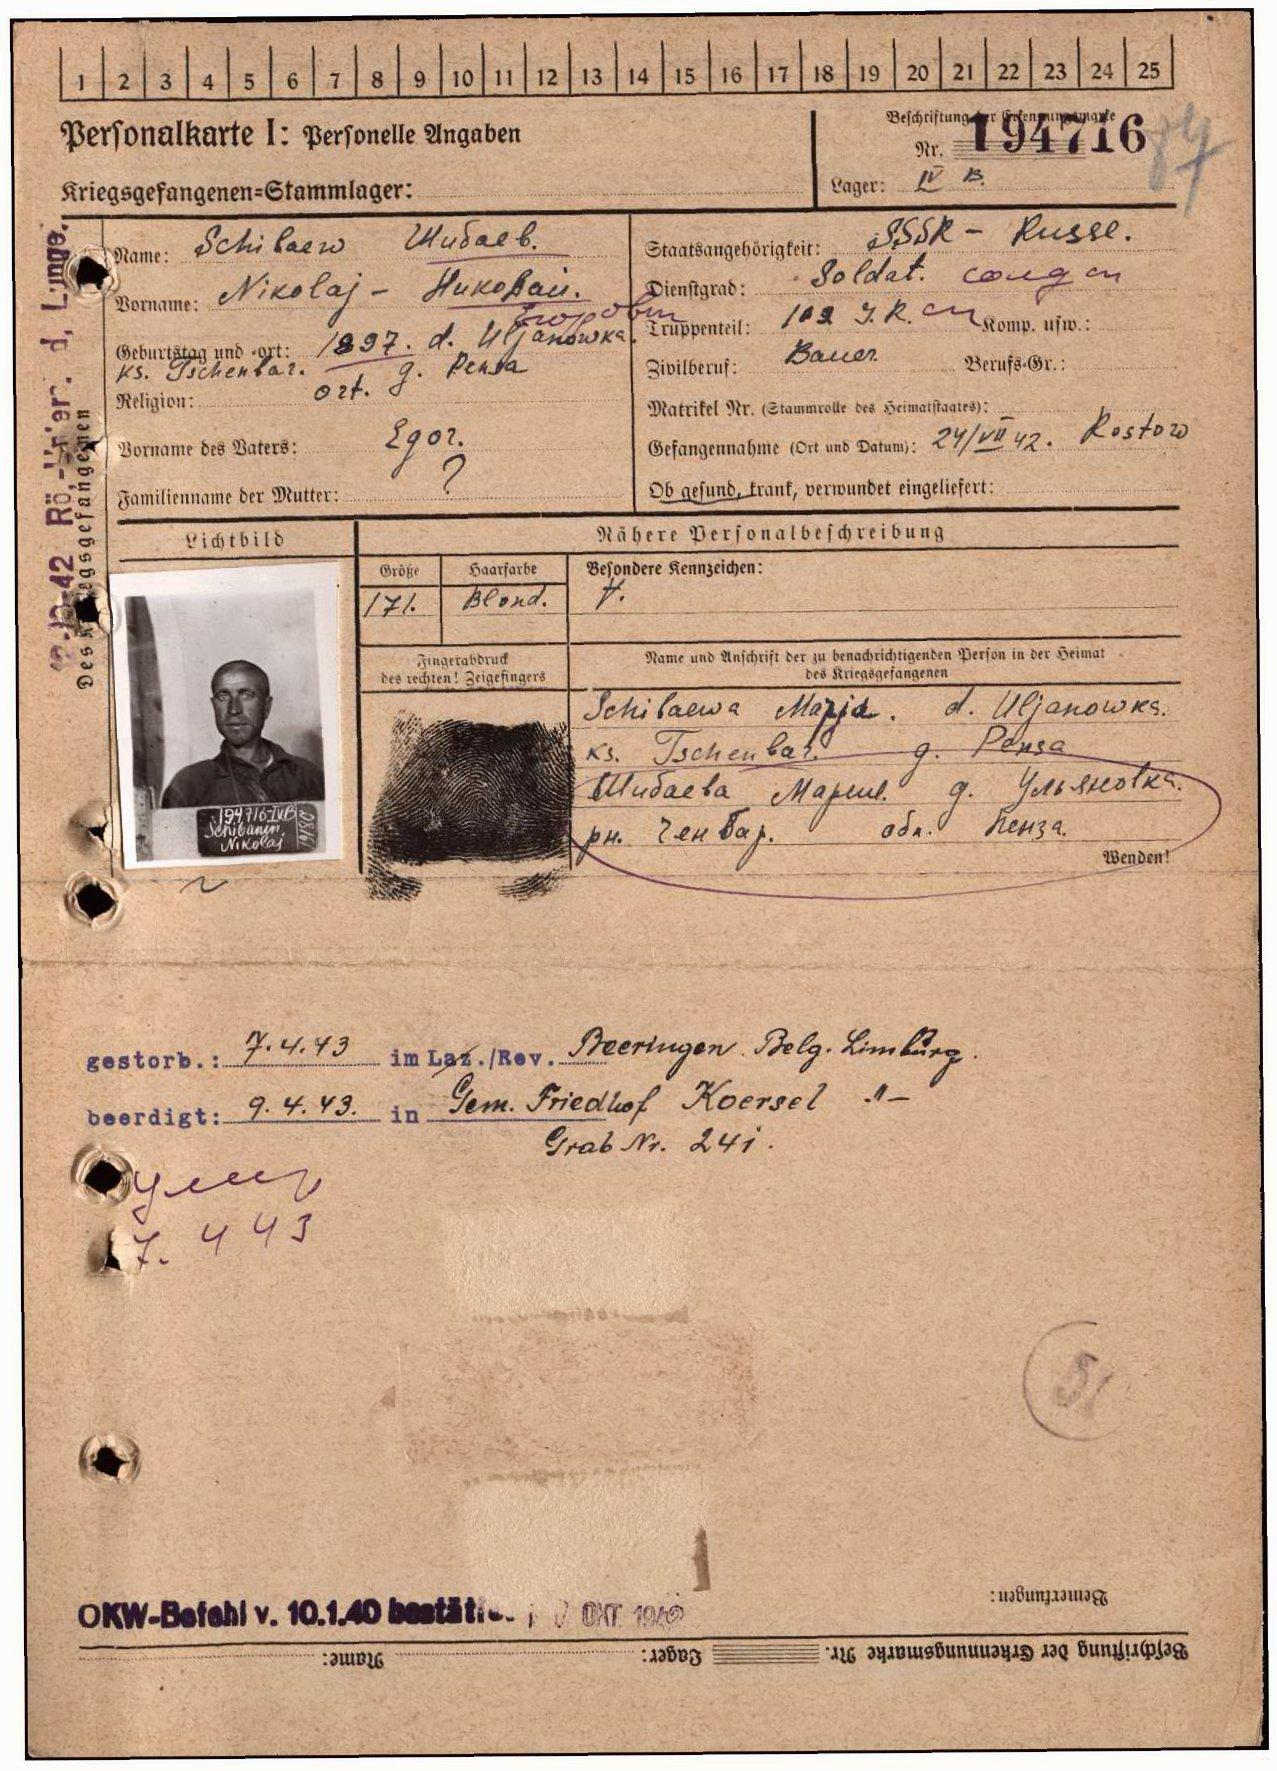 1 2 3 4 5 6 7 8 9 10 11 12 13 14 15 16 17 18 19 20 21 22 23 24 25
Personalkarte I: Personelle Angaben
Beschriftung der Erkennungsmarke
Nr. 194716
87
Kriegsgefangenen=Stammlager:
Lager: IV B.
Name: Schibaew Шибаев.
Vorname: Nikolaj – Николай.
Егорович
Geburtstag und -ort: 1897. d. Uljanowka.
ks. Tschenbar. g. Pensa
Religion: ort.
Vorname des Vaters: Egor.
Familienname der Mutter: ?
Staatsangehörigkeit: SSSR – Russe.
Dienstgrad: Soldat. солдат
Truppenteil: 102 I.R. сп Komp. usw.:
Zivilberuf: Bauer Berufs-Gr.:
Matrikel Nr. (Stammrolle des Heimatstaates):
Gefangennahme (Ort und Datum): 24/VII 42. Rostow
Ob gesund, krank, verwundet eingeliefert:
Des Kriegsgefangenen
42 Rö.- d. Lunge.
Lichtbild
Nähere Personalbeschreibung
Größe Haarfarbe Besondere Kennzeichen:
171. Blond.
Fingerabdruck
des rechten! Zeigefingers
Name und Anschrift der zu benachrichtigenden Person in der Heimat
des Kriegsgefangenen
Schibaewa Marja. d. Uljanowka.
ks. Tschenbar. g. Pensa
Шибаева Мария. д. Ульяновка.
рн. Ченбар. обл. Пенза.
Wenden!
194716-IVB
Schibanin.
Nikolaj
gestorb.: 7.4.43 im Laz./Rev. Beeringen Belg. Limburg.
beerdigt: 9.4.43. in Gem. Friedhof Koersel -"-
Grab Nr. 241.
Умер
7. 4 43
51
Bemerkungen:
OKW-Befehl v. 10.1.40 OKT. 1942
Beschriftung der Erkennungsmarke Nr. Lager: Name: